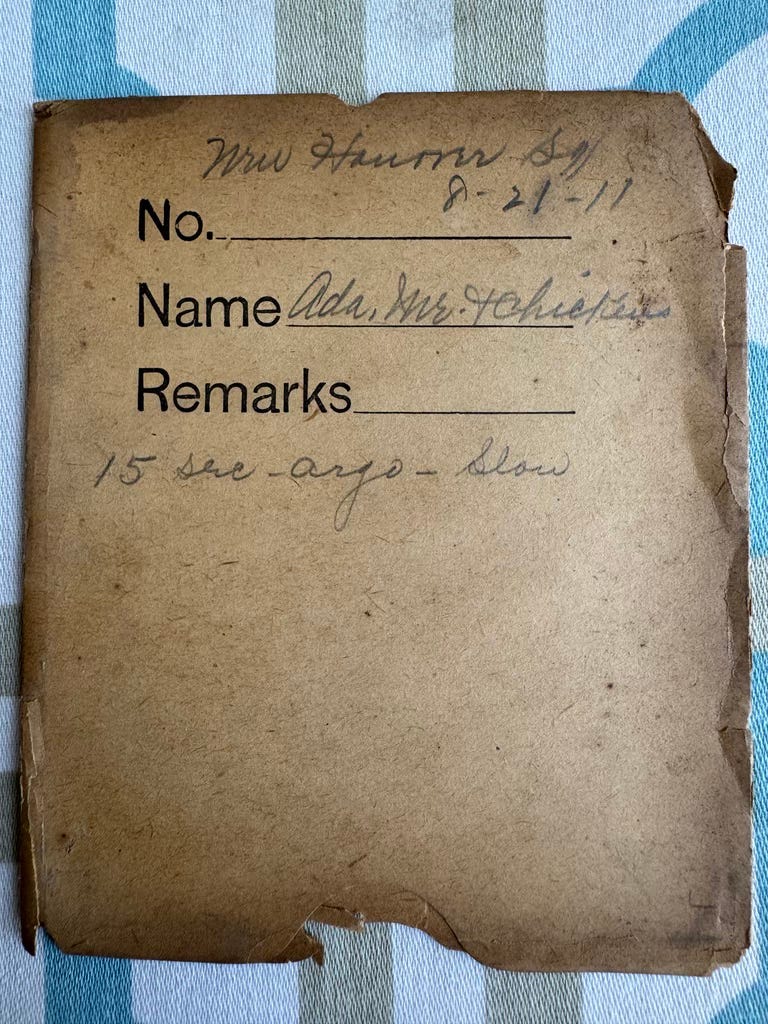 Hanover Sq
8-21-11
No.
Name Ada, Me. & Chickens
Remarks
15 sec - argo - Slow